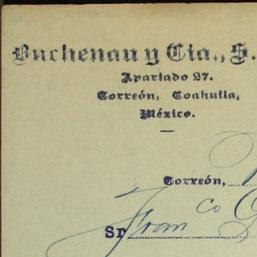 Buchenau y Cia., S.
Apartado 27.
Torreón, Coahuila,
México.
Torreón,
Sr Franco